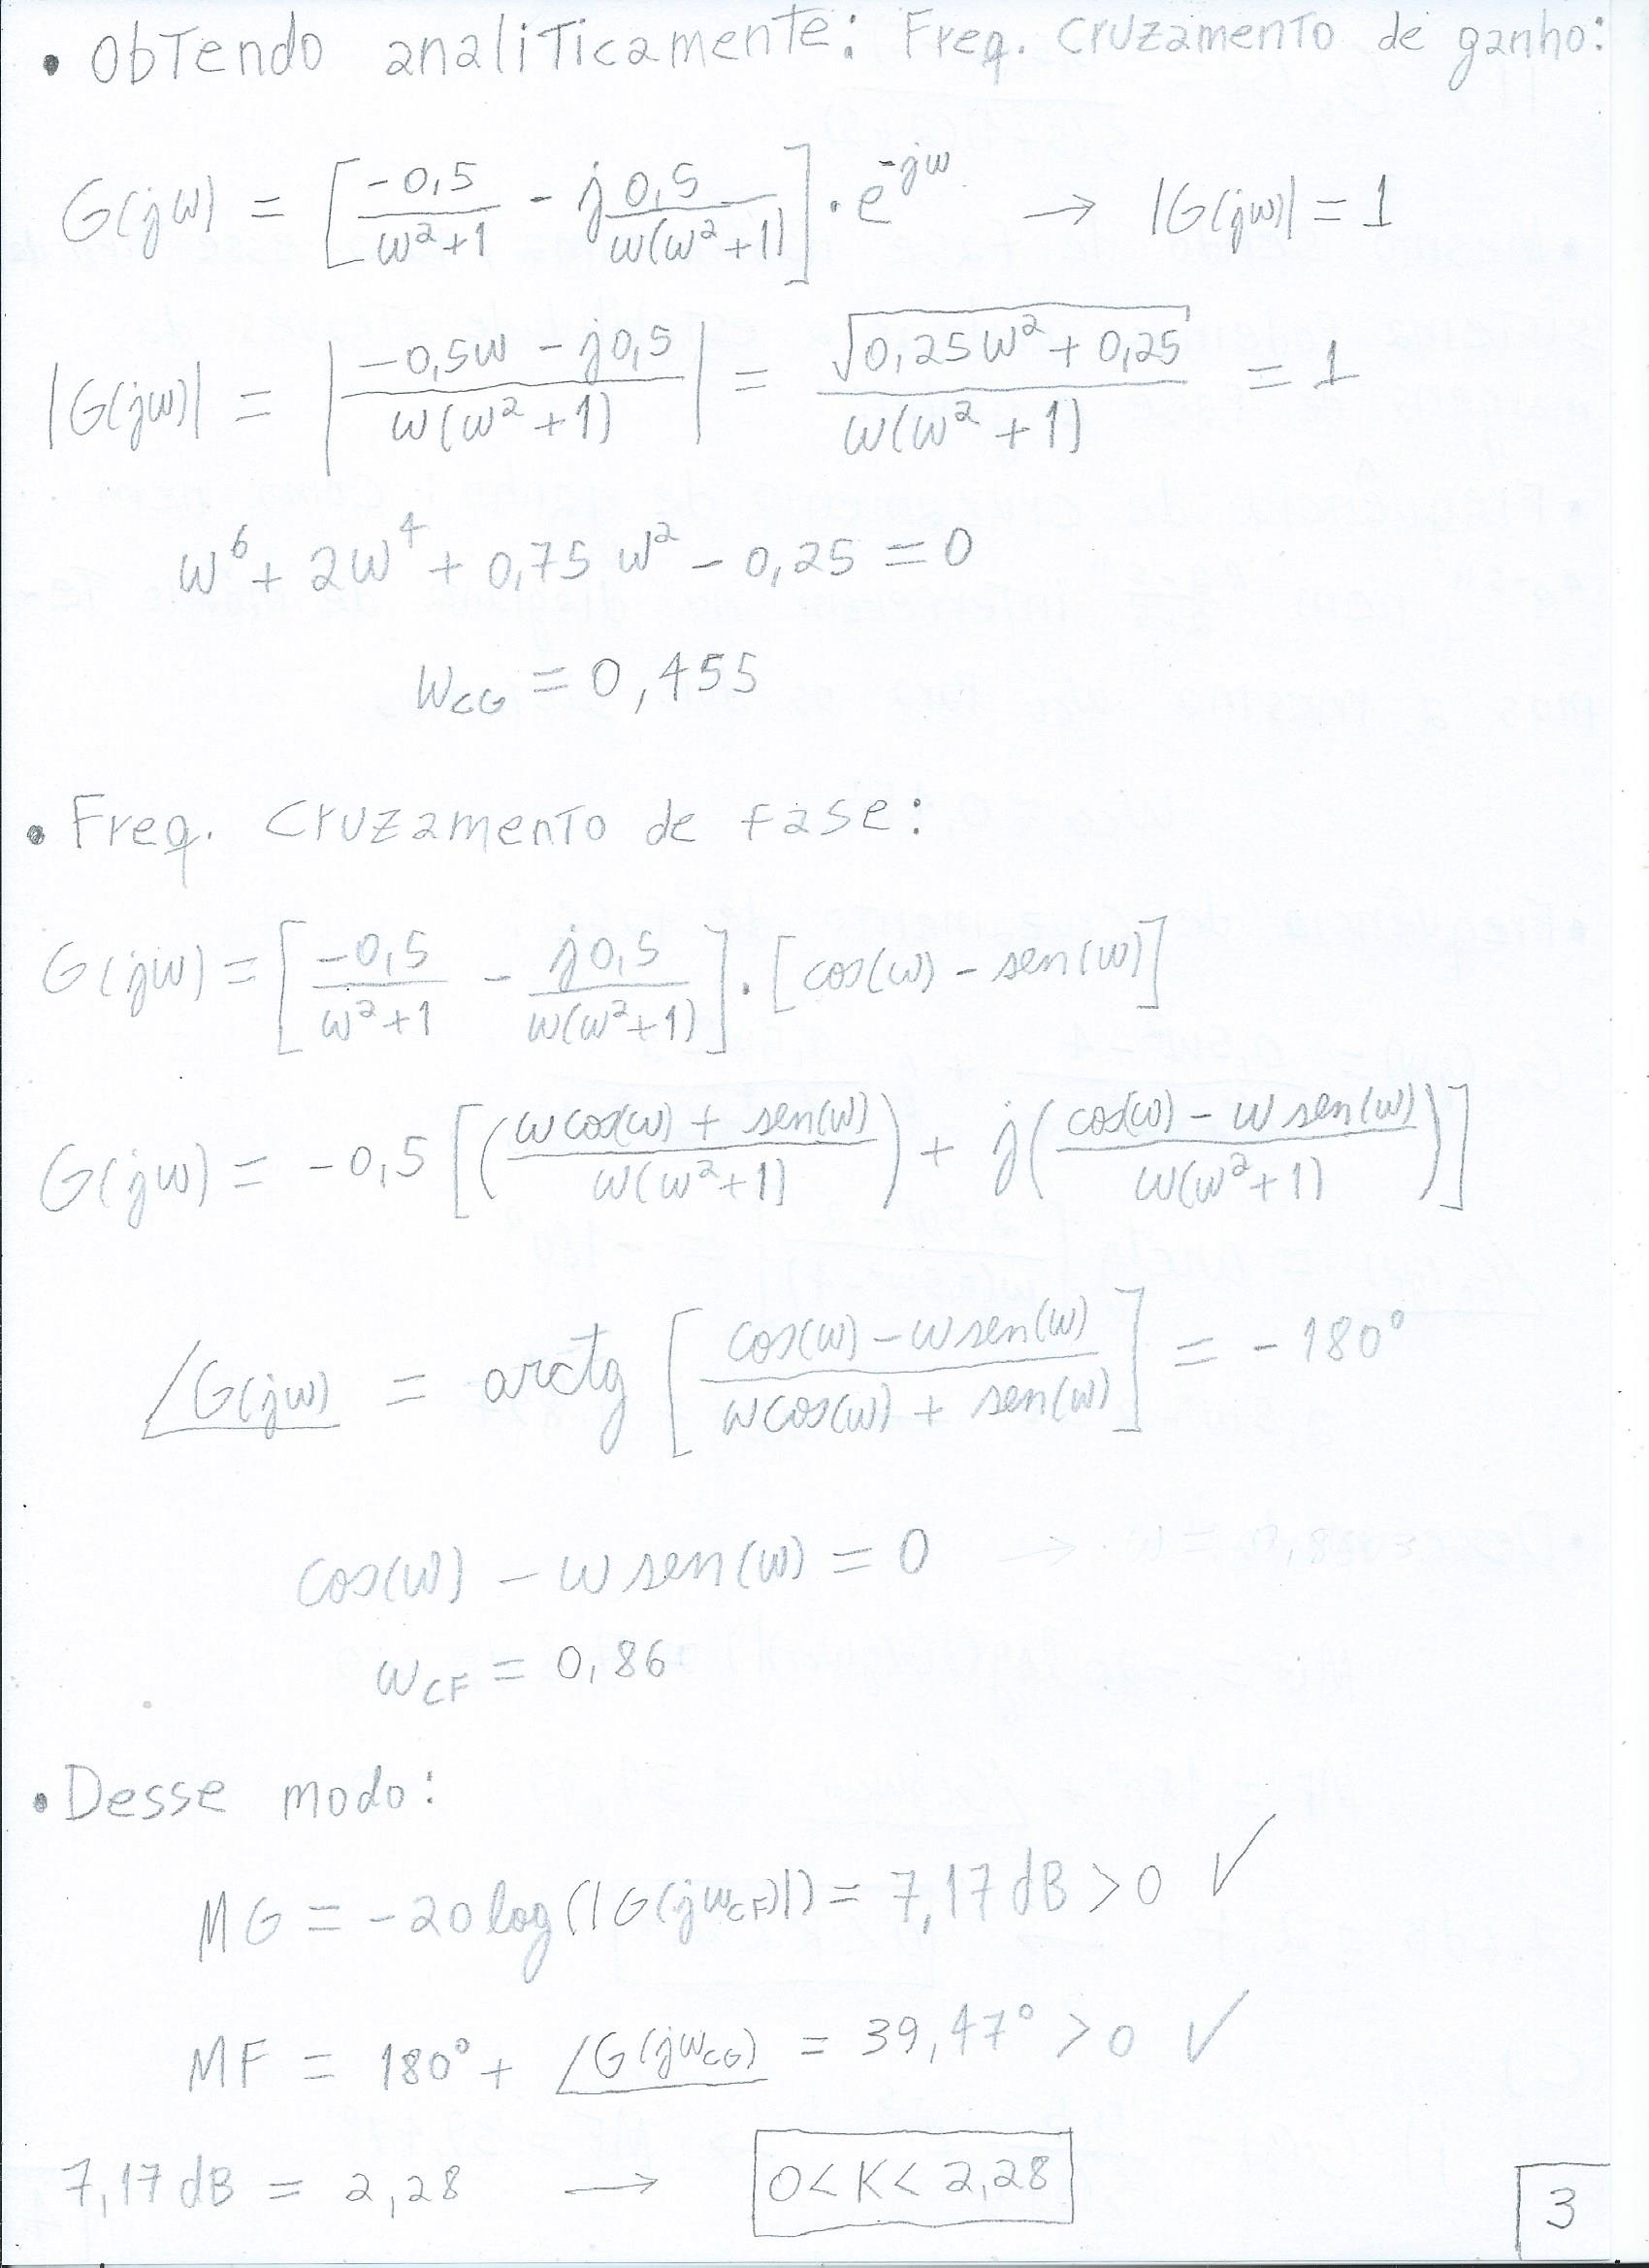 • Obtendo analiticamente: Freq. cruzamento de ganho:
G(jω) = [-0,5/(ω²+1) - j 0,5/(ω(ω²+1))] · e^(-jω) → |G(jω)| = 1
|G(jω)| = |(-0,5ω - j0,5)/(ω(ω²+1))| = √(0,25ω² + 0,25)/(ω(ω²+1)) = 1
ω⁶ + 2ω⁴ + 0,75ω² - 0,25 = 0
ω_CG = 0,455
• Freq. cruzamento de fase:
G(jω) = [-0,5/(ω²+1) - j0,5/(ω(ω²+1))] · [cos(ω) - sen(ω)]
G(jω) = -0,5 [((ωcos(ω) + sen(ω))/(ω(ω²+1))) + j((cos(ω) - ω sen(ω))/(ω(ω²+1)))]
∠G(jω) = arctg [(cos(ω) - ω sen(ω))/(ωcos(ω) + sen(ω))] = -180°
cos(ω) - ω sen(ω) = 0
ω_CF = 0,86
• Desse modo:
MG = -20 log(|G(jω_CF)|) = 7,17 dB > 0 ✓
MF = 180° + ∠G(jω_CG) = 39,47° > 0 ✓
7,17 dB = 2,28 → 0 < K < 2,28
3